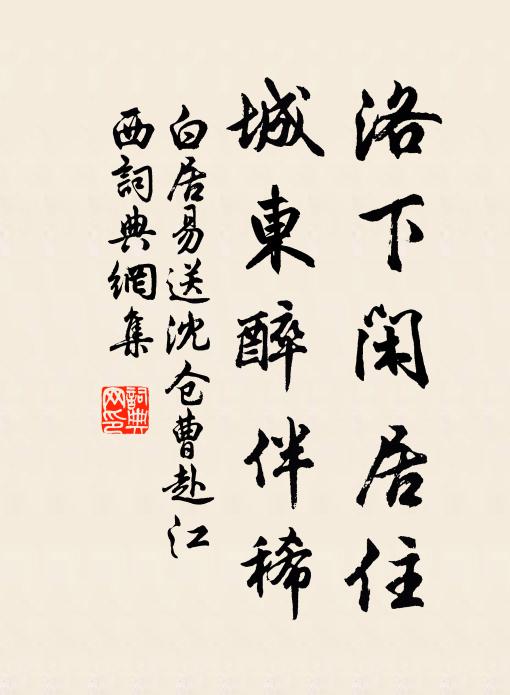 洛下閑居住
城東醉伴稀
白居易送沈仓曹赴江
西詞典網集
詞典
网印